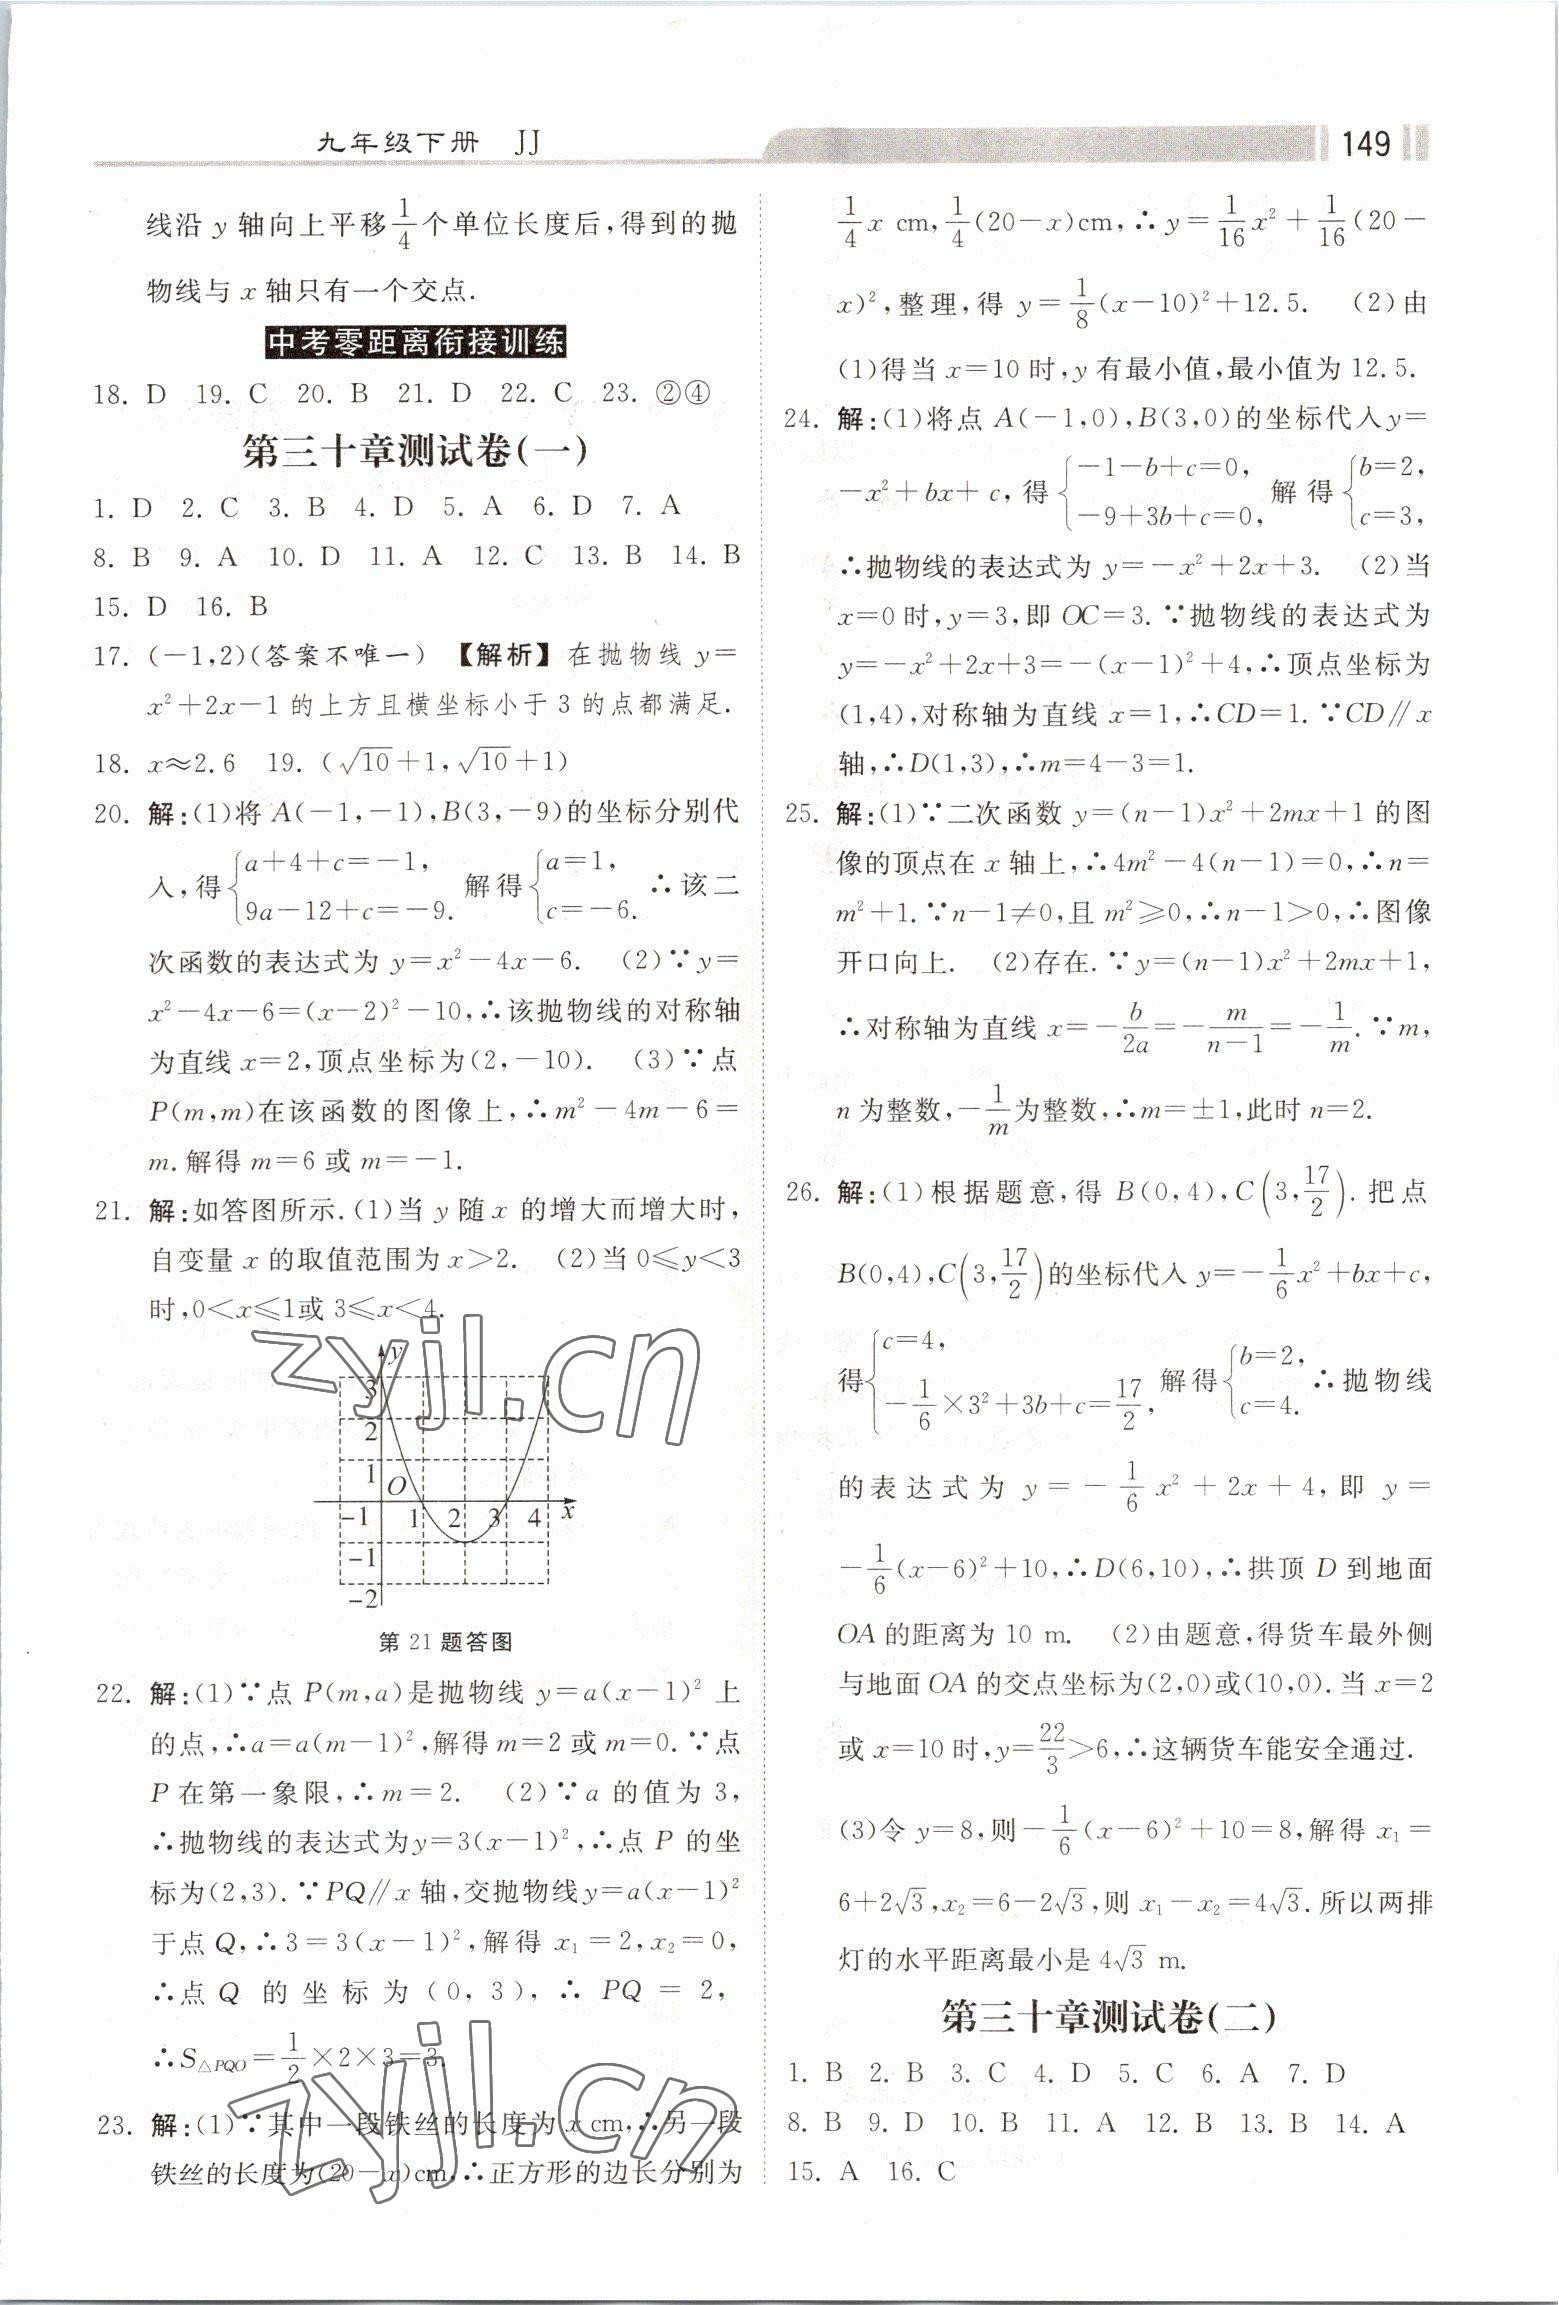 九年级下册 JJ
149
线沿 y 轴向上平移1/4个单位长度后,得到的抛
物线与 x 轴只有一个交点.
中考零距离衔接训练
18. D 19. C 20. B 21. D 22. C 23. ②④
第三十章测试卷(一)
1. D 2. C 3. B 4. D 5. A 6. D 7. A
8. B 9. A 10. D 11. A 12. C 13. B 14. B
15. D 16. B
17. (-1,2)(答案不唯一) 【解析】在抛物线 y=
x²+2x-1 的上方且横坐标小于 3 的点都满足.
18. x≈2.6 19. (√10+1,√10+1)
20. 解:(1)将 A(-1,-1),B(3,-9)的坐标分别代
入,得{a+4+c=-1, 9a-12+c=-9. 解得{a=1, c=-6. ∴该二
次函数的表达式为 y=x²-4x-6. (2)∵y=
x²-4x-6=(x-2)²-10,∴该抛物线的对称轴
为直线 x=2,顶点坐标为(2,-10). (3)∵点
P(m,m)在该函数的图像上,∴m²-4m-6=
m.解得 m=6 或 m=-1.
21. 解:如答图所示.(1)当 y 随 x 的增大而增大时,
自变量 x 的取值范围为 x>2. (2)当 0≤y<3
时,0<x≤1或 3≤x<4.
y
3
2
1
O
-1 1 2 3 4 x
-1
-2
第 21 题答图
22. 解:(1)∵点 P(m,a)是抛物线 y=a(x-1)² 上
的点,∴a=a(m-1)²,解得 m=2 或 m=0.∵点
P 在第一象限,∴m=2. (2)∵a 的值为 3,
∴抛物线的表达式为y=3(x-1)²,∴点 P 的坐
标为(2,3).∵PQ∥x 轴,交抛物线y=a(x-1)²
于点 Q,∴3=3(x-1)²,解得 x₁=2,x₂=0,
∴点 Q 的坐标为(0,3),∴PQ=2,
∴S△PQO=1/2×2×3=3.
23. 解:(1)∵其中一段铁丝的长度为 x cm,∴另一段
铁丝的长度为(20-x)cm,∴正方形的边长分别为
1/4x cm,1/4(20-x)cm,∴y=1/16x²+1/16(20-
x)²,整理,得 y=1/8(x-10)²+12.5. (2)由
(1)得当 x=10 时,y 有最小值,最小值为 12.5.
24. 解:(1)将点 A(-1,0),B(3,0)的坐标代入y=
-x²+bx+c,得{-1-b+c=0, -9+3b+c=0, 解得{b=2, c=3,
∴抛物线的表达式为 y=-x²+2x+3. (2)当
x=0 时,y=3,即 OC=3.∵抛物线的表达式为
y=-x²+2x+3=-(x-1)²+4,∴顶点坐标为
(1,4),对称轴为直线 x=1,∴CD=1.∵CD∥x
轴,∴D(1,3),∴m=4-3=1.
25. 解:(1)∵二次函数 y=(n-1)x²+2mx+1 的图
像的顶点在 x 轴上,∴4m²-4(n-1)=0,∴n=
m²+1.∵n-1≠0,且 m²≥0,∴n-1>0,∴图像
开口向上. (2)存在.∵y=(n-1)x²+2mx+1,
∴对称轴为直线 x=-b/2a=-m/(n-1)=-1/m.∵m,
n 为整数,-1/m为整数,∴m=±1,此时 n=2.
26. 解:(1)根据题意,得 B(0,4),C(3,17/2).把点
B(0,4),C(3,17/2)的坐标代入 y=-1/6x²+bx+c,
得{c=4, -1/6×3²+3b+c=17/2, 解得{b=2, c=4. ∴抛物线
的表达式为 y=-1/6x²+2x+4,即 y=
-1/6(x-6)²+10,∴D(6,10),∴拱顶 D 到地面
OA 的距离为 10 m. (2)由题意,得货车最外侧
与地面 OA 的交点坐标为(2,0)或(10,0).当 x=2
或 x=10 时,y=22/3>6,∴这辆货车能安全通过.
(3)令 y=8,则-1/6(x-6)²+10=8,解得 x₁=
6+2√3,x₂=6-2√3,则 x₁-x₂=4√3.所以两排
灯的水平距离最小是 4√3 m.
第三十章测试卷(二)
1. B 2. B 3. C 4. D 5. C 6. A 7. D
8. B 9. D 10. B 11. A 12. B 13. B 14. A
15. A 16. C
zyjl.cn
zyjl.cn